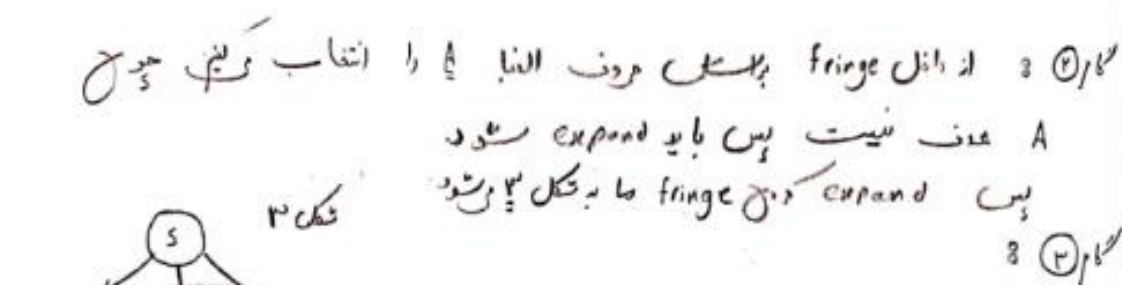 گام ②: از داخل fringe براساس حروف الفبا A را انتخاب می‌کنیم چون
A هدف نیست پس باید expand شود
پس expand کردن fringe ما به شکل ۳ می‌شود
شکل ۳
گام ③:
S